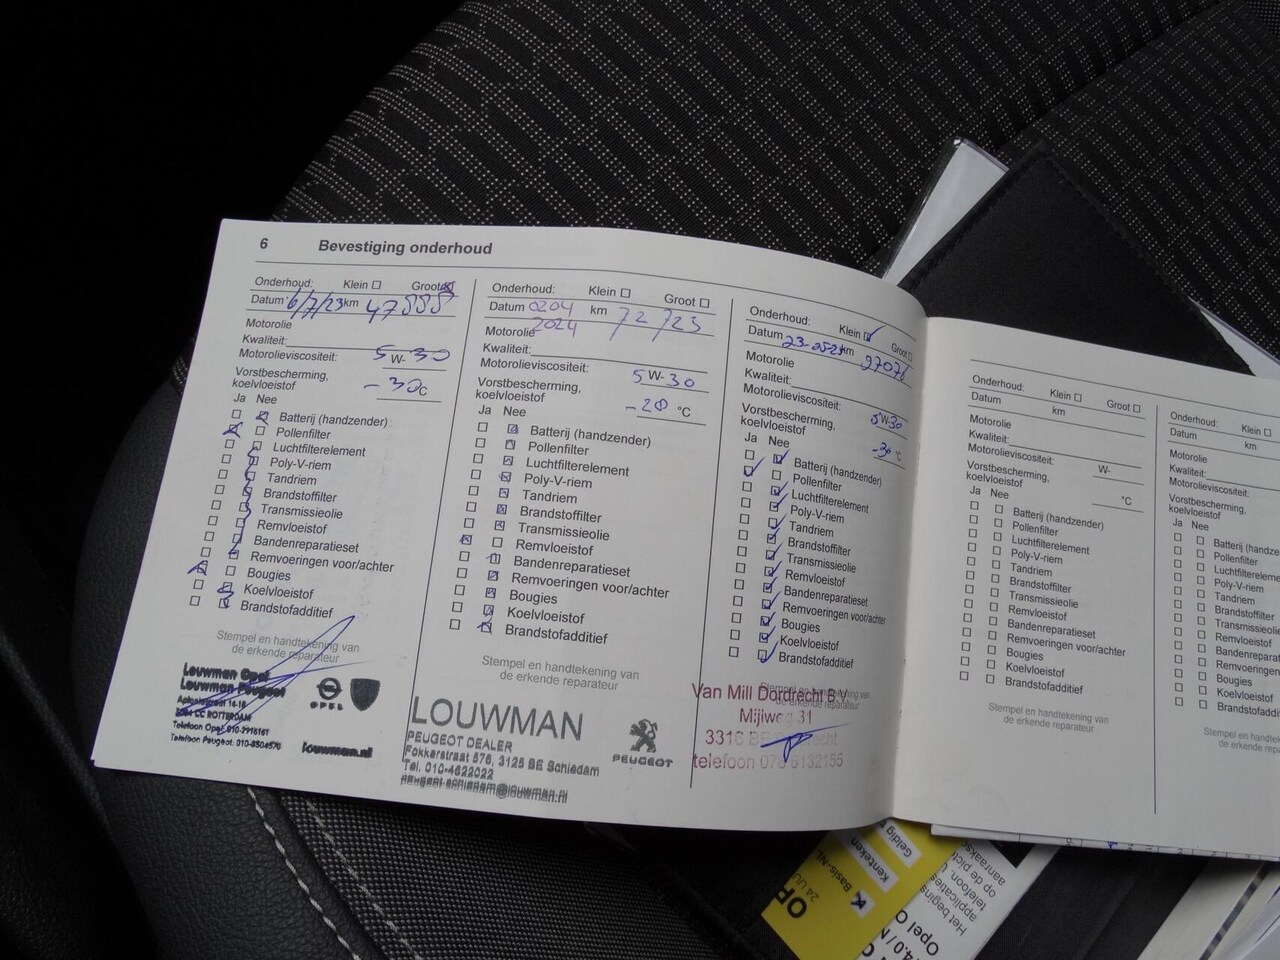 6 Bevestiging onderhoud
Onderhoud: Klein Groot
Datum 6/7/23 km 47888
Motorolie
Kwaliteit:
Motorolieviscositeit: 5 W- 30
Vorstbescherming,
koelvloeistof -32 °C
Ja Nee
Batterij (handzender)
Pollenfilter
Luchtfilterelement
Poly-V-riem
Tandriem
Brandstoffilter
Transmissieolie
Remvloeistof
Bandenreparatieset
Remvoeringen voor/achter
Bougies
Koelvloeistof
Brandstofadditief
Stempel en handtekening van
de erkende reparateur
Louwman Opel
Louwman Peugeot
ROTTERDAM
Telefoon Opel:
Telefoon Peugeot: 010-8504570
OPEL
louwman.nl
Onderhoud: Klein Groot
Datum 0204 km 72723
2024
Motorolie
Kwaliteit:
Motorolieviscositeit: 5 W- 30
Vorstbescherming,
koelvloeistof -28 °C
Ja Nee
Batterij (handzender)
Pollenfilter
Luchtfilterelement
Poly-V-riem
Tandriem
Brandstoffilter
Transmissieolie
Remvloeistof
Bandenreparatieset
Remvoeringen voor/achter
Bougies
Koelvloeistof
Brandstofadditief
Stempel en handtekening van
de erkende reparateur
LOUWMAN
PEUGEOT DEALER
Fokkerstraat 576, 3125 BE Schiedam
Tel. 010-4622022
peugeot.schiedam@louwman.nl
PEUGEOT
Onderhoud: Klein Groot
Datum 23-05-25 km 97076
Motorolie
Kwaliteit:
Motorolieviscositeit: 5 W- 30
Vorstbescherming,
koelvloeistof -30 °C
Ja Nee
Batterij (handzender)
Pollenfilter
Luchtfilterelement
Poly-V-riem
Tandriem
Brandstoffilter
Transmissieolie
Remvloeistof
Bandenreparatieset
Remvoeringen voor/achter
Bougies
Koelvloeistof
Brandstofadditief
Stempel en handtekening van
de erkende reparateur
Van Mill Dordrecht B.V.
Mijlweg 31
3316 BE Dordrecht
telefoon 078 6132155
Onderhoud: Klein Groot
Datum km
Motorolie
Kwaliteit:
Motorolieviscositeit: W-
Vorstbescherming,
koelvloeistof °C
Ja Nee
Batterij (handzender)
Pollenfilter
Luchtfilterelement
Poly-V-riem
Tandriem
Brandstoffilter
Transmissieolie
Remvloeistof
Bandenreparatieset
Remvoeringen voor/achter
Bougies
Koelvloeistof
Brandstofadditief
Stempel en handtekening van
de erkende reparateur
Onderhoud: Klein
Datum km
Motorolie
Kwaliteit:
Motorolieviscositeit:
Vorstbescherming,
koelvloeistof
Ja Nee
Batterij (handze
Pollenfilter
Luchtfilterelem
Poly-V-riem
Tandriem
Brandstoffilter
Transmissieol
Remvloeistof
Bandenrepara
Remvoeringen
Bougies
Koelvloeistof
Brandstofaddi
Stempel en handteke
de erkende repa
OP
24 UU
Basis-NL
Kenteken
Geldig
Opel
Het begins
applicaties
telefoon.
op de pict
aanraaksc